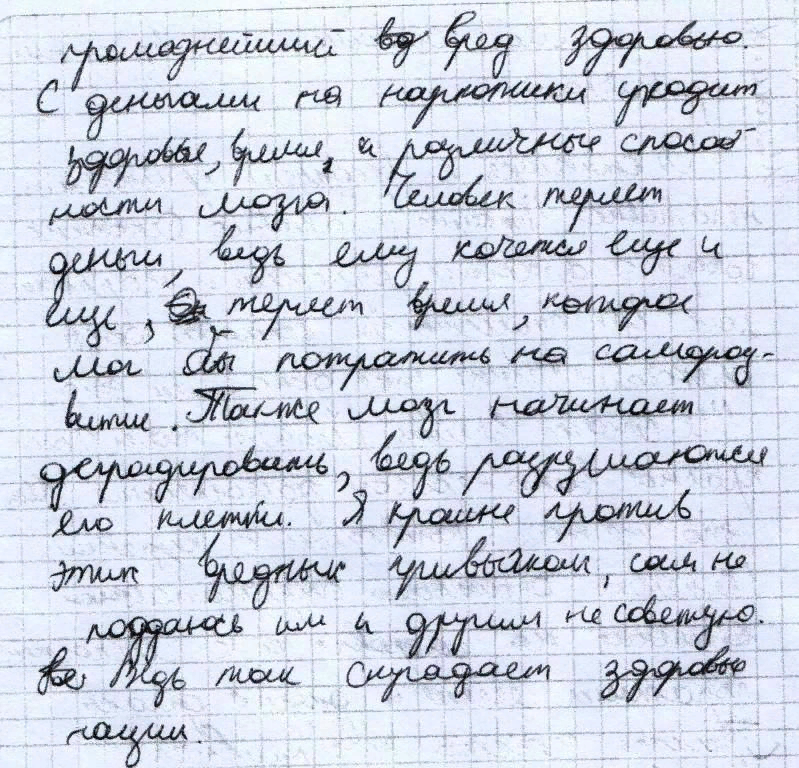 громаднейший вред здоровью.
С деньгами на наркотики уходит
здоровье, время, и различные способ
ности мозга. Человек теряет
деньги, ведь ему хочется еще и
еще, теряет время, которое
мог бы потратить на самораз-
витие. Также мозг начинает
деградировать, ведь разрушаются
его клетки. Я крайне против
этих вредных привычком, сам не
поддаюсь им и другим не советую.
Ведь так страдает здоровье
нации.